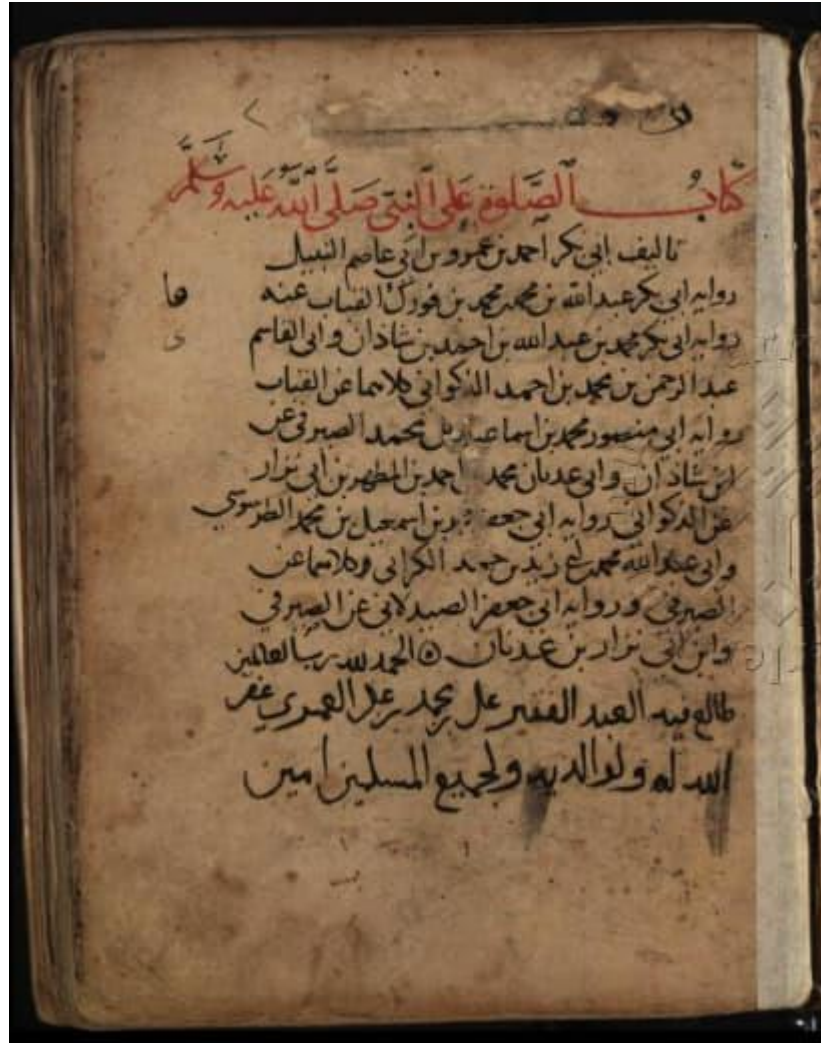 كتاب الصلوة على النبي صلى الله عليه وسلم
تاليف ابي بكر احمد بن عمرو بن ابي عاصم النبيل
روايه ابي بكر عبد الله بن محمد بن محمد بن فورك القباب عنه
روايه ابي بكر محمد بن عبد الله بن احمد بن شاذان وابي القاسم
عبد الرحمن بن محمد بن احمد الذكواني كلاهما عن القباب
روايه ابي منصور محمد بن اسماعيل بن محمد الصيرفي عن
ابن شاذان وابي عدنان محمد احمد بن المطهر بن ابي نزار
عن الذكواني روايه ابي جعفر بن اسمعيل بن محمد الطرسوسي
وابي عبد الله محمد بن ابي زيد بن حمد الكراني كلاهما عن
الصيرفي وروايه ابي جعفر الصيدلاني عن الصيرفي
وابن ابي نزار بن عدنان الحمد لله رب العالمين
طالع فيه العبد الفقير على بن محمد بن على العمري غفر
الله له ولوالديه ولجميع المسلمين امين